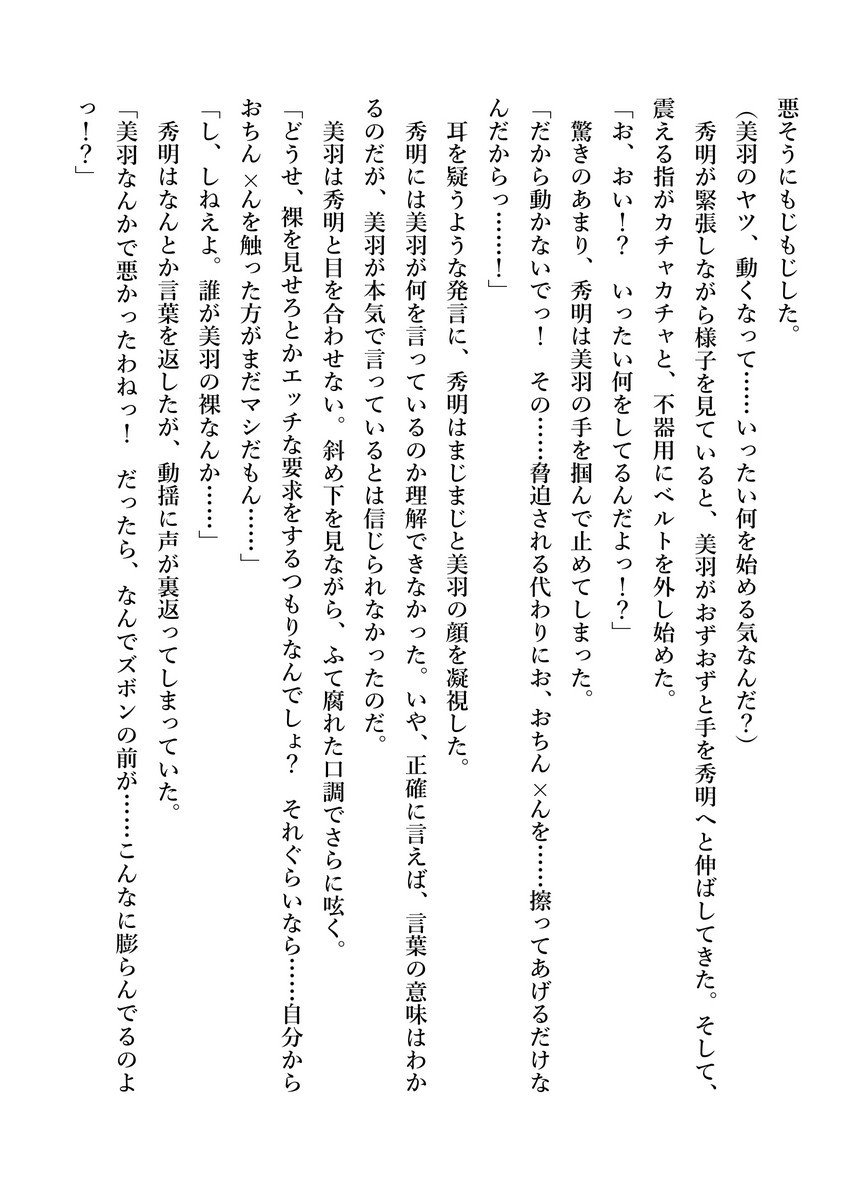 悪そうにもじもじした。
（美羽のヤツ、動くなって……いったい何を始める気なんだ？）
　秀明が緊張しながら様子を見ていると、美羽がおずおずと手を秀明へと伸ばしてきた。そして、
震える指がカチャカチャと、不器用にベルトを外し始めた。
「お、おい！？　いったい何をしてるんだよっ！？」
　驚きのあまり、秀明は美羽の手を掴んで止めてしまった。
「だから動かないでっ！　その……脅迫される代わりにお、おちん×んを……擦ってあげるだけな
んだからっ……！」
　耳を疑うような発言に、秀明はまじまじと美羽の顔を凝視した。
　秀明には美羽が何を言っているのか理解できなかった。いや、正確に言えば、言葉の意味はわか
るのだが、美羽が本気で言っているとは信じられなかったのだ。
　美羽は秀明と目を合わせない。斜め下を見ながら、ふて腐れた口調でさらに呟く。
「どうせ、裸を見せろとかエッチな要求をするつもりなんでしょ？　それぐらいなら……自分から
おちん×んを触った方がまだマシだもん……」
「し、しねえよ。誰が美羽の裸なんか……」
　秀明はなんとか言葉を返したが、動揺に声が裏返ってしまっていた。
「美羽なんかで悪かったわねっ！　だったら、なんでズボンの前が……こんなに膨らんでるのよ
っ！？」